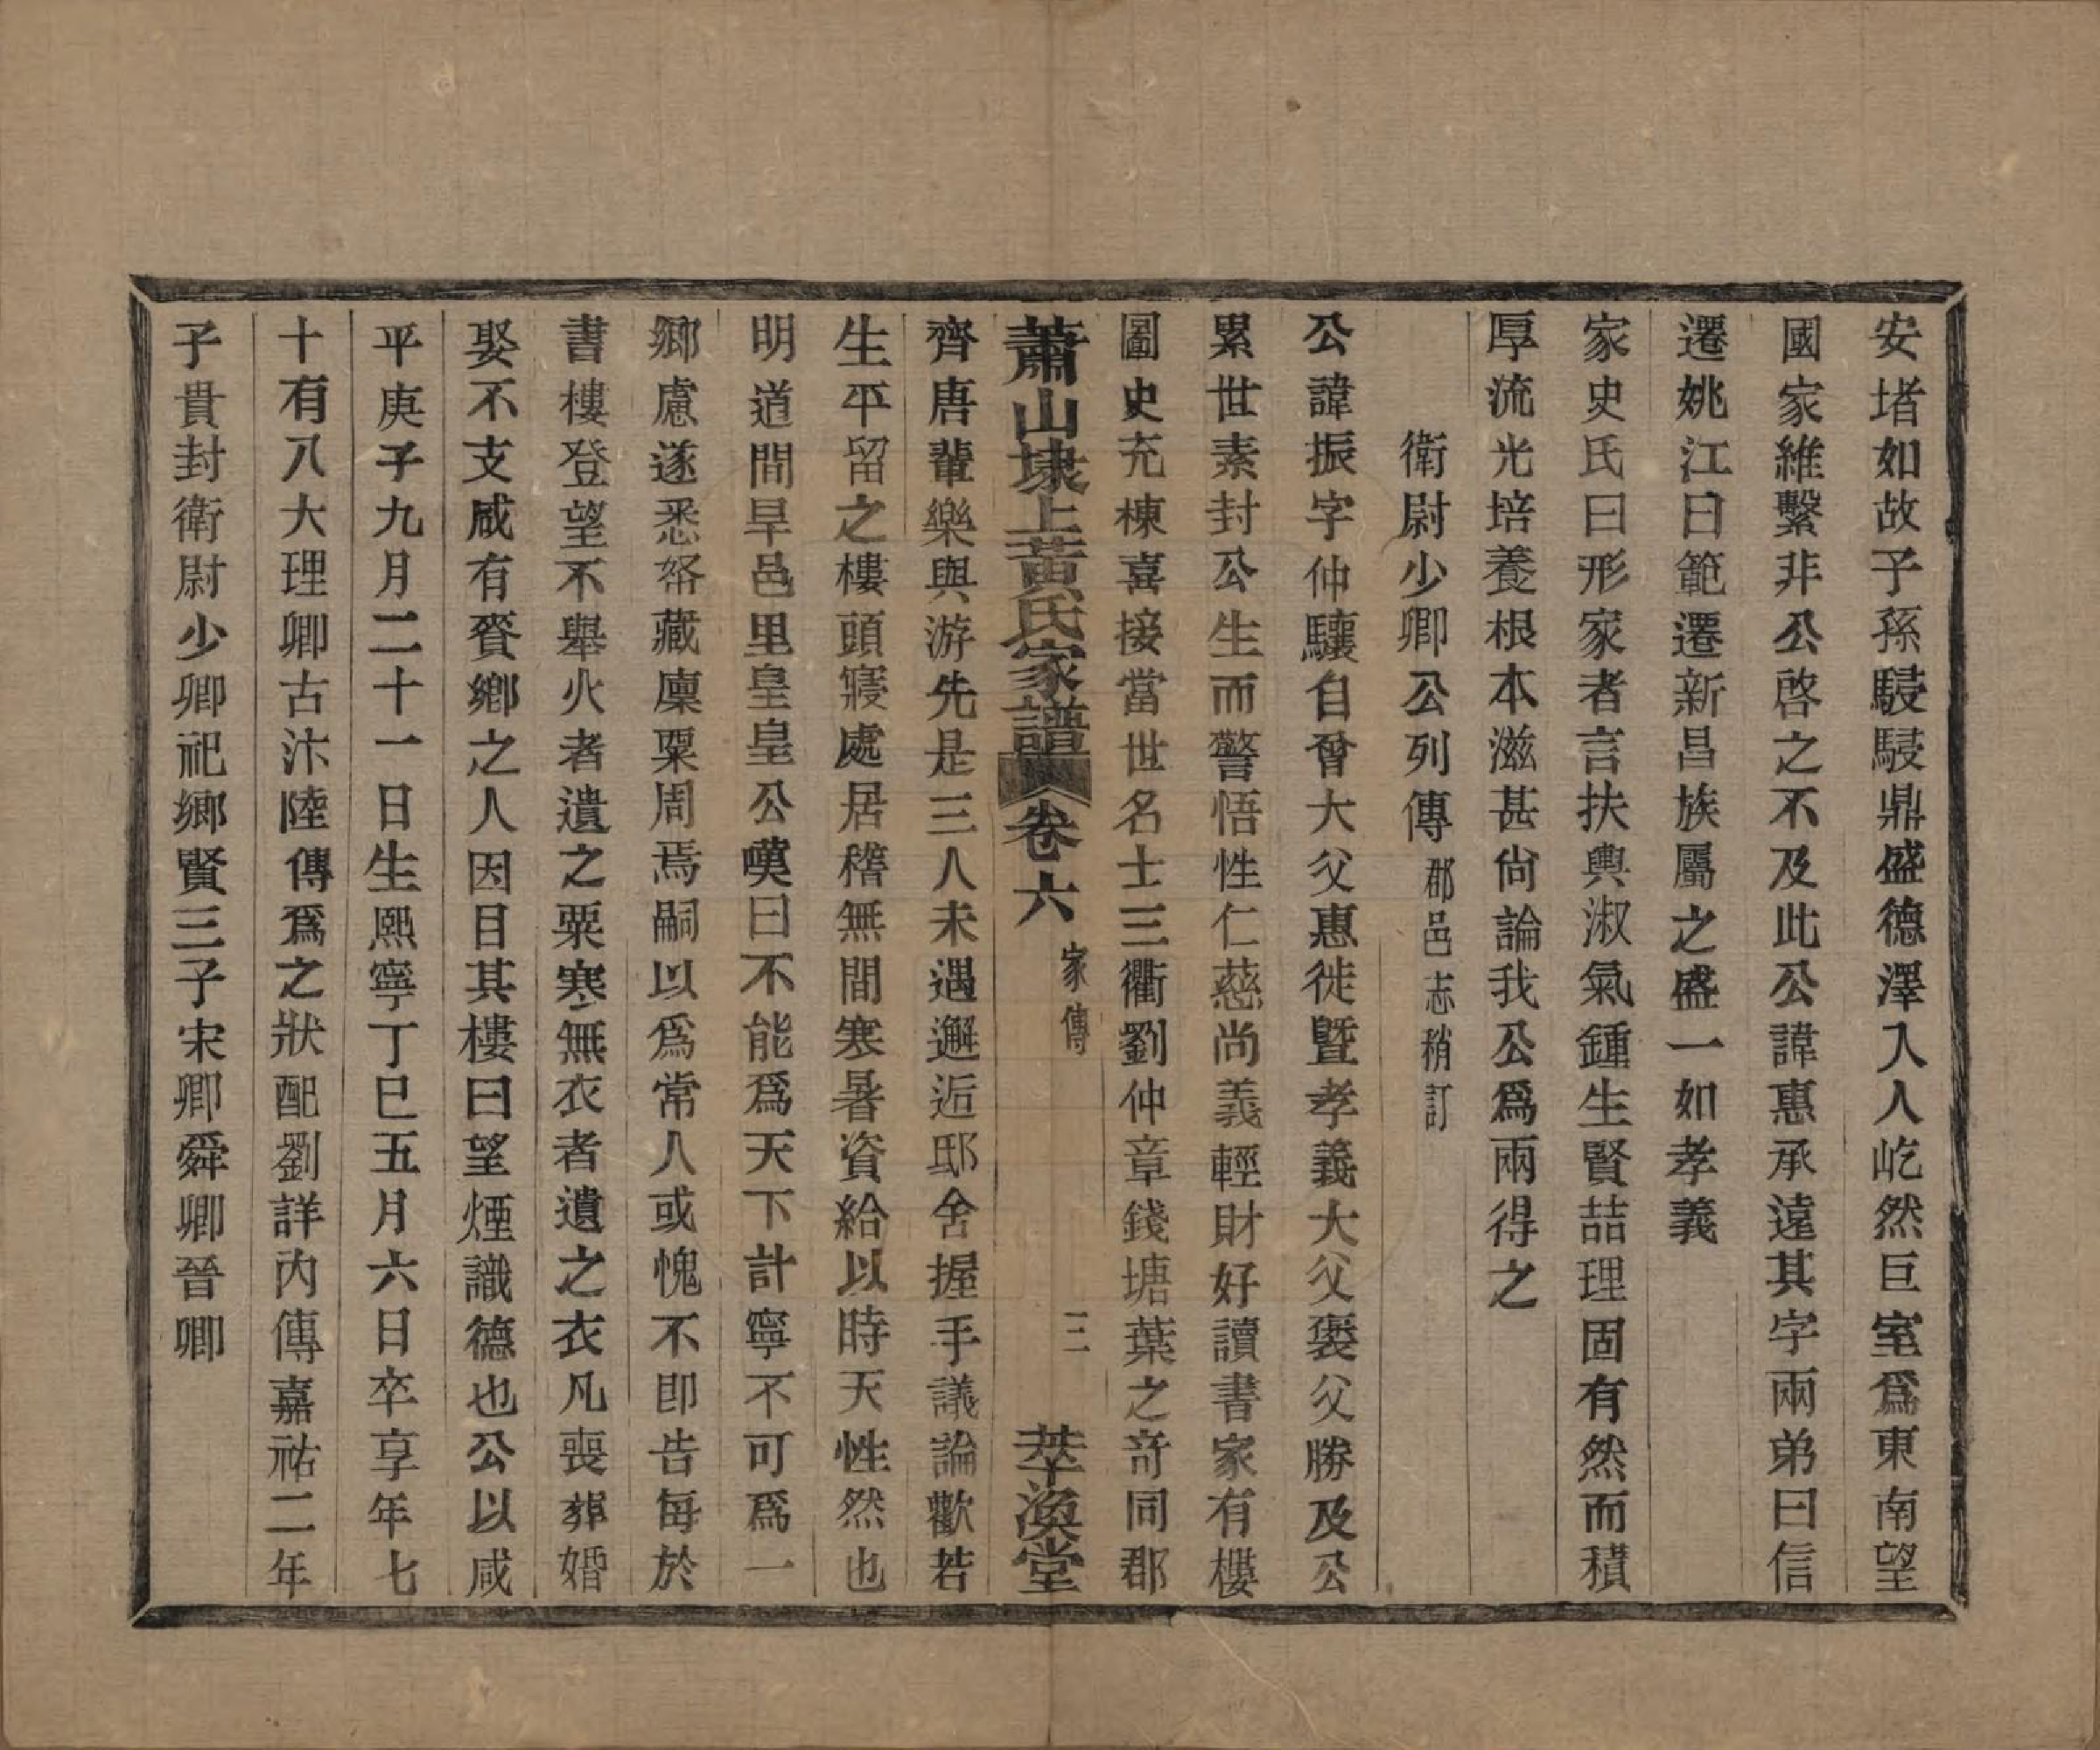 安堵如故子孫駸駸鼎盛德澤入人屹然巨室爲東南望
國家維繫非公啓之不及此公諱惠承遠其字兩弟曰信
遷姚江曰範遷新昌族屬之盛一如孝義
家史氏曰形家者言扶輿淑氣鍾生賢喆理固有然而積
厚流光培養根本滋甚尙論我公爲兩得之
衛尉少卿公列傳郡邑志稍訂
公諱振字仲驤自曾大父惠徙暨孝義大父褎父勝及公
累世素封公生而警悟性仁慈尚義輕財好讀書家有樓
圖史充棟喜接當世名士三衢劉仲章錢塘葉之奇同郡
蕭山埭上黃氏家譜 卷六 家傳 三 萃渙堂
齊唐輩樂與游先是三人未遇邂逅邸舍握手議論歡若
生平留之樓頭寢處居稽無間寒暑資給以時天性然也
明道間旱邑里皇皇公嘆曰不能爲天下計寧不可爲一
鄉慮遂悉帑藏廩粟周焉嗣以爲常人或愧不卽告每於
書樓登望不舉火者遺之粟寒無衣者遺之衣凡喪葬婚
娶不支咸有賚鄉之人因目其樓曰望煙識德也公以咸
平庚子九月二十一日生熙寧丁巳五月六日卒享年七
十有八大理卿古汴陸傳爲之狀配劉詳內傳嘉祐二年
子貴封衛尉少卿祀鄉賢三子宋卿舜卿晉卿